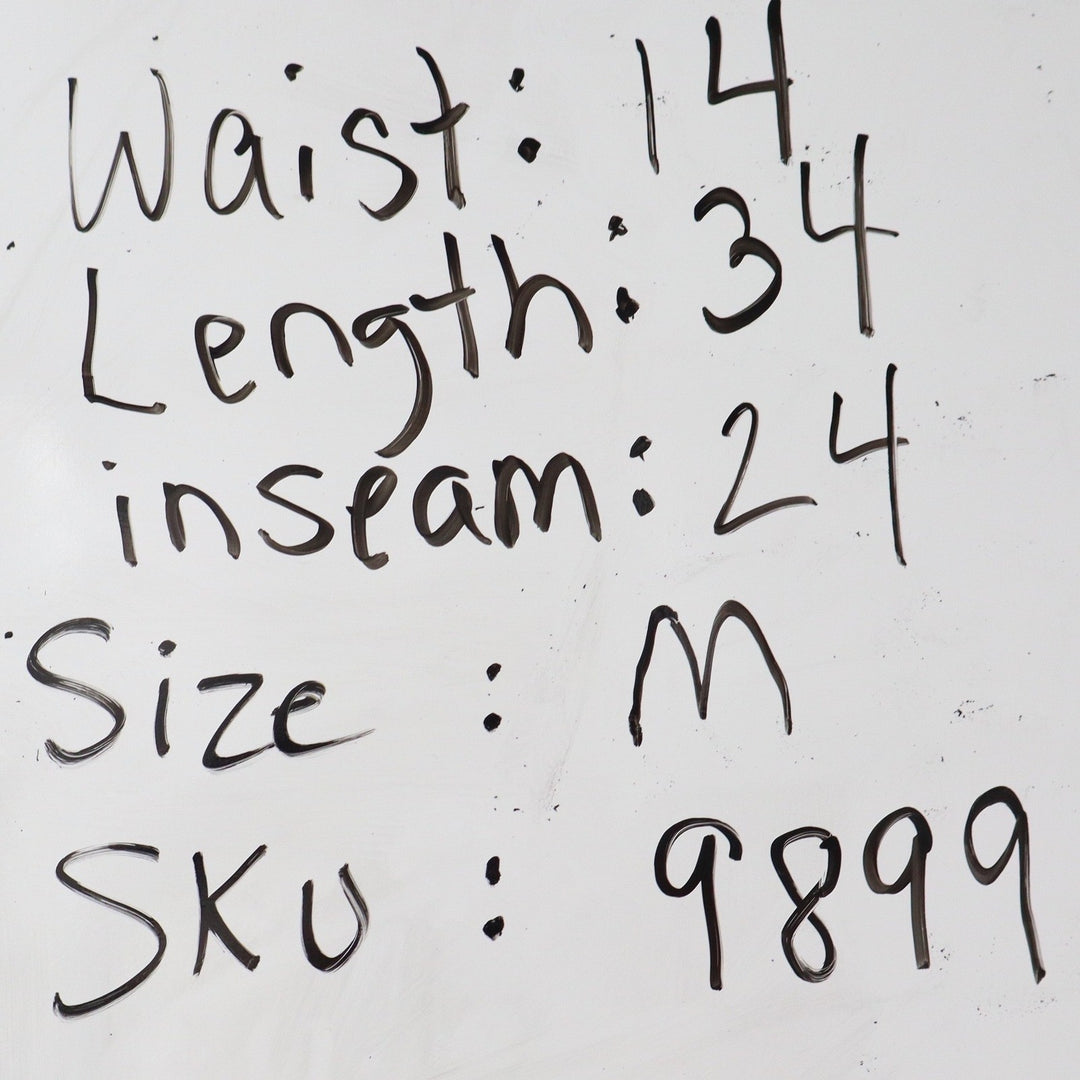 Waist: 14
Length: 34
inseam: 24
Size : M
SKU : 9899